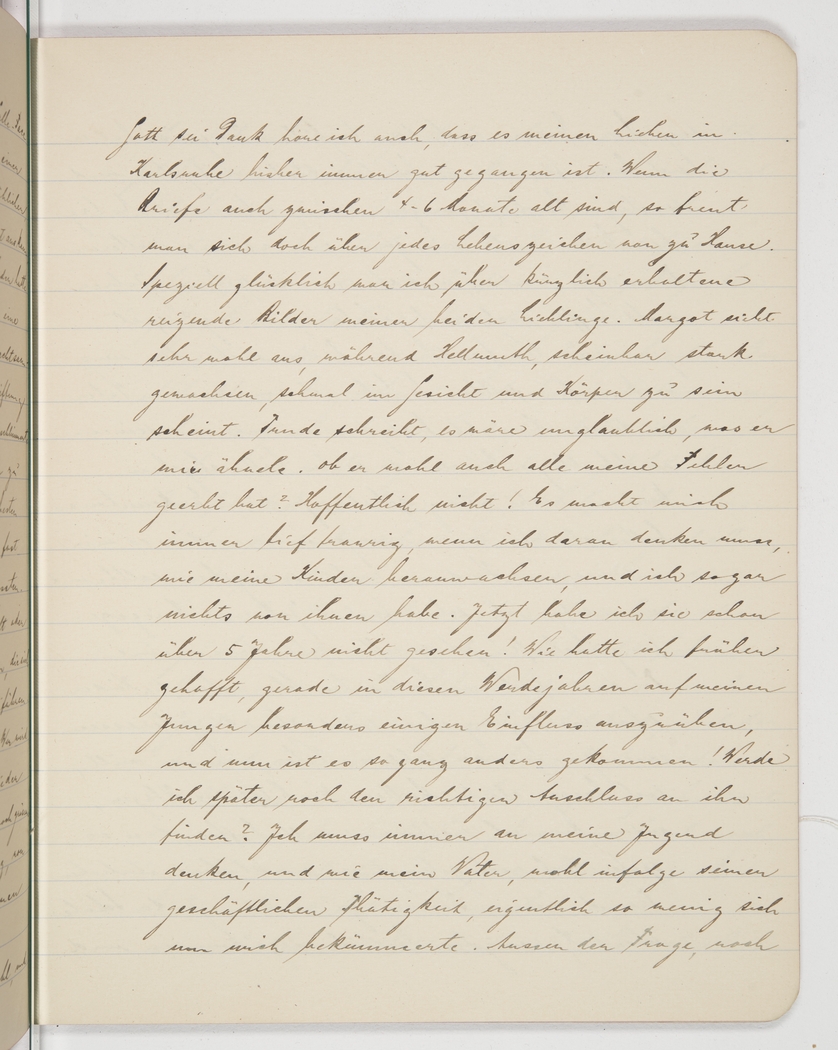 Gott sei Dank höre ich auch, dass es meinen Lieben in
Karlsruhe bisher immer gut gegangen ist. Wenn die
Briefe auch zwischen 4-6 Monate alt sind, so freut
man sich doch über jedes Lebenszeichen von zu Hause.
Speziell glücklich war ich über kürzlich erhaltene
reizende Bilder meiner beiden Lieblinge. Margot sieht
sehr wohl aus, während Hellmuth, scheinbar stark
gewachsen, schmal im Gesicht und Körper zu sein
scheint. Trude schreibt, es wäre unglaublich, was er
mir ähnele. Ob er wohl auch alle meine Fehler
geerbt hat? Hoffentlich nicht! Es macht mich
immer tief traurig, wenn ich daran denken muss,
wie meine Kinder heranwachsen, und ich so gar
nichts von ihnen habe. Jetzt habe ich sie schon
über 5 Jahre nicht gesehen! Wie hatte ich früher
gehofft, gerade in diesen Werdejahren auf meinen
Jungen besonders einigen Einfluss auszuüben,
und nun ist es so ganz anders gekommen! Werde
ich später noch den richtigen Anschluss an ihn
finden? Ich muss immer an meine Jugend
denken, und wie mein Vater, wohl infolge seiner
geschäftlichen Thätigkeit, eigentlich so wenig sich
um mich bekümmerte. Ausser der Frage, nach